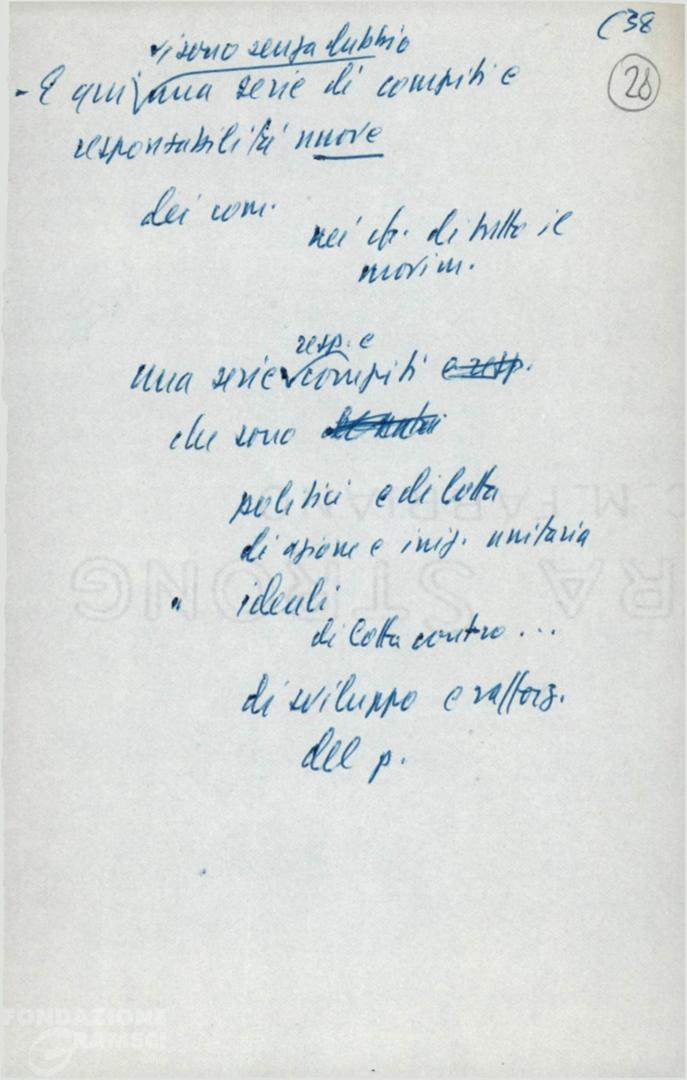 (38
28
vi sono senza dubbio
- E qui una serie di compiti e
responsabilità nuove
dei com.
nei cfr. di tutto il
movim.
resp. e
una serie compiti e resp.
che sono
politici e di lotta
di azione e iniz. unitaria
" ideali
di lotta contro ...
di sviluppo e rafforz.
del p.
C. M. FABRIANO
RA STRONG
FONDAZIONE
GRAMSCI